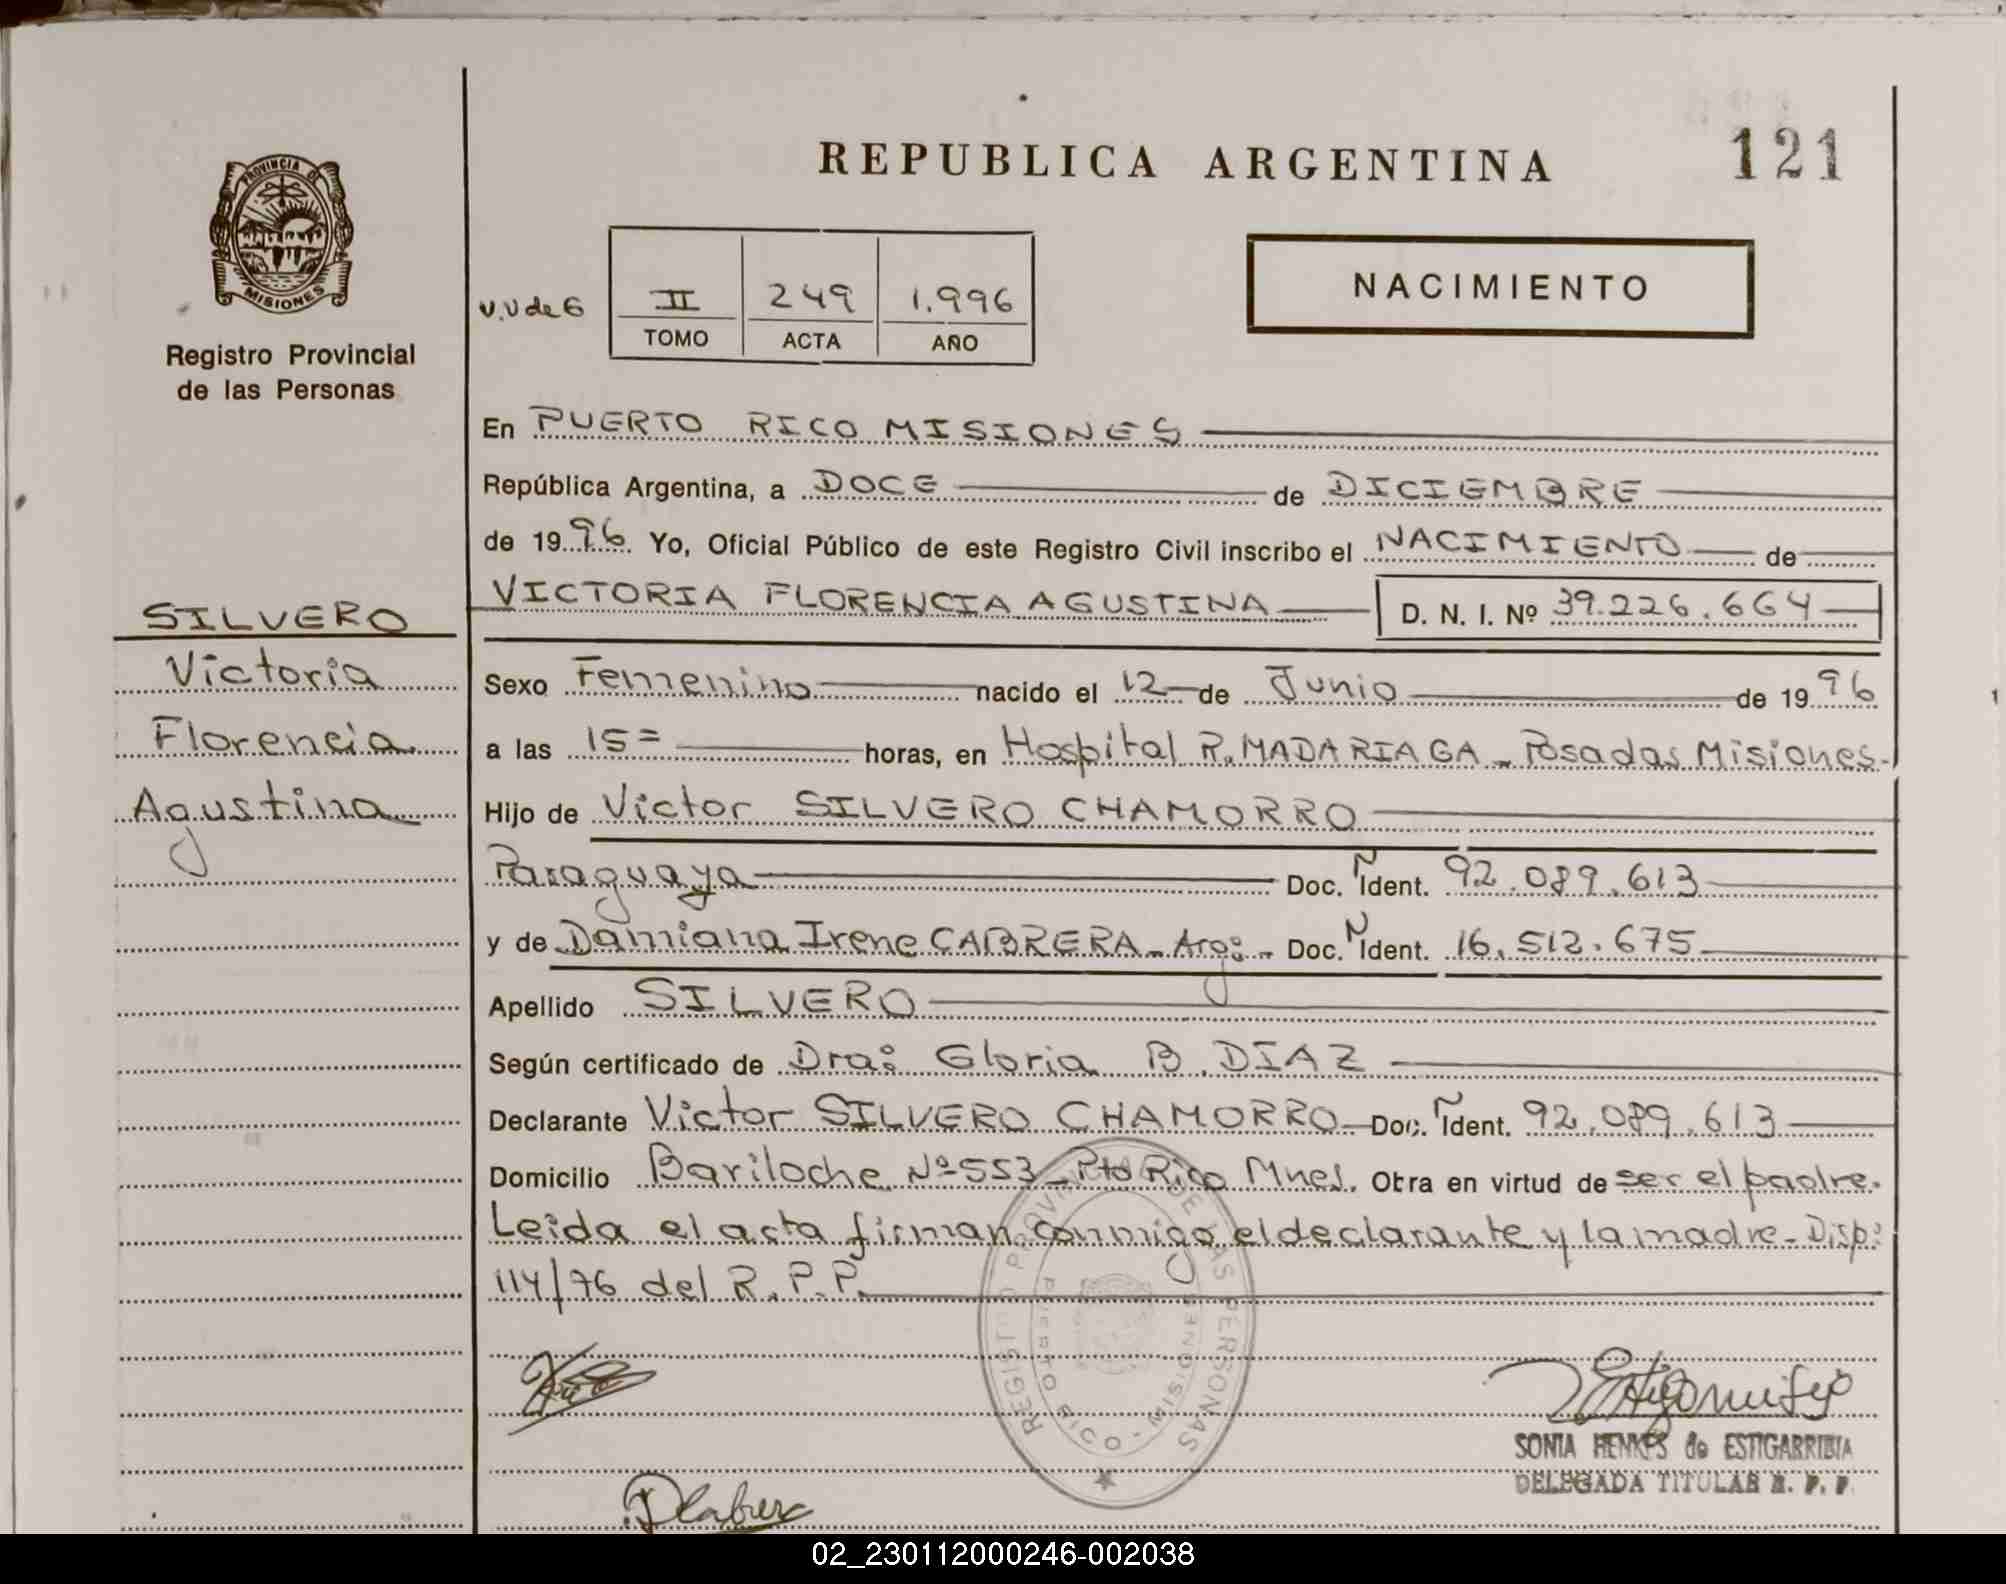 REPUBLICA ARGENTINA
121
PROVINCIA DE
MISIONES
Registro Provincial
de las Personas
v.v de 6
II 249 1.996
TOMO ACTA AÑO
NACIMIENTO
En PUERTO RICO MISIONES
República Argentina, a DOCE de DICIEMBRE
de 1996. Yo, Oficial Público de este Registro Civil inscribo el NACIMIENTO de
VICTORIA FLORENCIA AGUSTINA D. N. I. Nº 39.226.664
SILVERO
Victoria
Florencia
Agustina
Sexo Femenino nacido el 12 de Junio de 1996
a las 15= horas, en Hospital R. MADARIAGA - Posadas Misiones.
Hijo de Victor SILVERO CHAMORRO
Paraguaya Doc. N Ident. 92.089.613
y de Damiana Irene CABRERA - Arg: - Doc. N Ident. 16.512.675
Apellido SILVERO
Según certificado de Dra: Gloria B. DIAZ
Declarante Victor SILVERO CHAMORRO Doc. N Ident. 92.089.613
Domicilio Bariloche Nº 553 - Pto Rico Mnes. Obra en virtud de ser el padre.
Leida el acta firman conmigo el declarante y la madre - Disp:
114/76 del R.P.P.
REGISTRO PROVINCIAL DE LAS PERSONAS
PUERTO RICO - MISIONES
SONIA HENKES de ESTIGARRIBIA
DELEGADA TITULAR R. P. P.
02_230112000246-002038